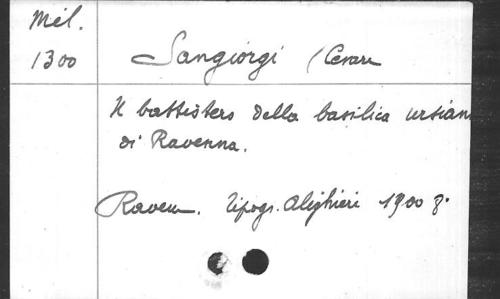 Mél.
1300
Sangiorgi (Cesare
Il battistero della basilica ursian
di Ravenna.
Raven. Tipogr. Alighieri 1900 8°